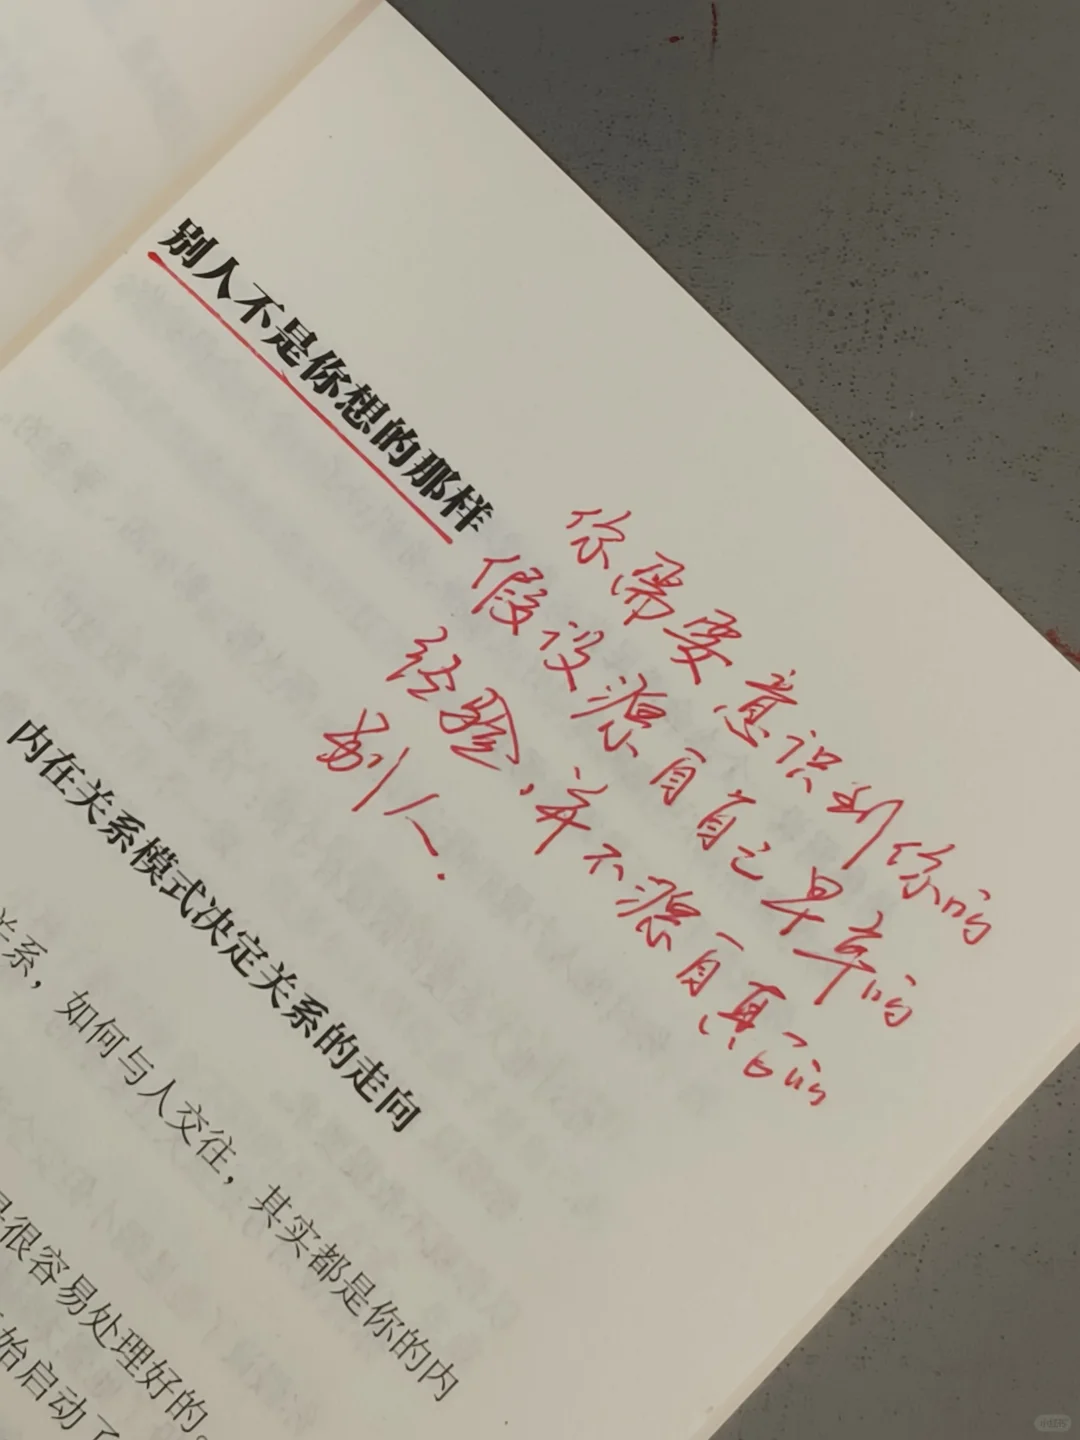 别人不是你想的那样
你需要意识到你的
假设源自自己早年的
经验，并不源自真的
别人.
内在关系模式决定关系的走向
关系，如何与人交往，其实都是你的内
是很容易处理好的。
始启动了
小红书